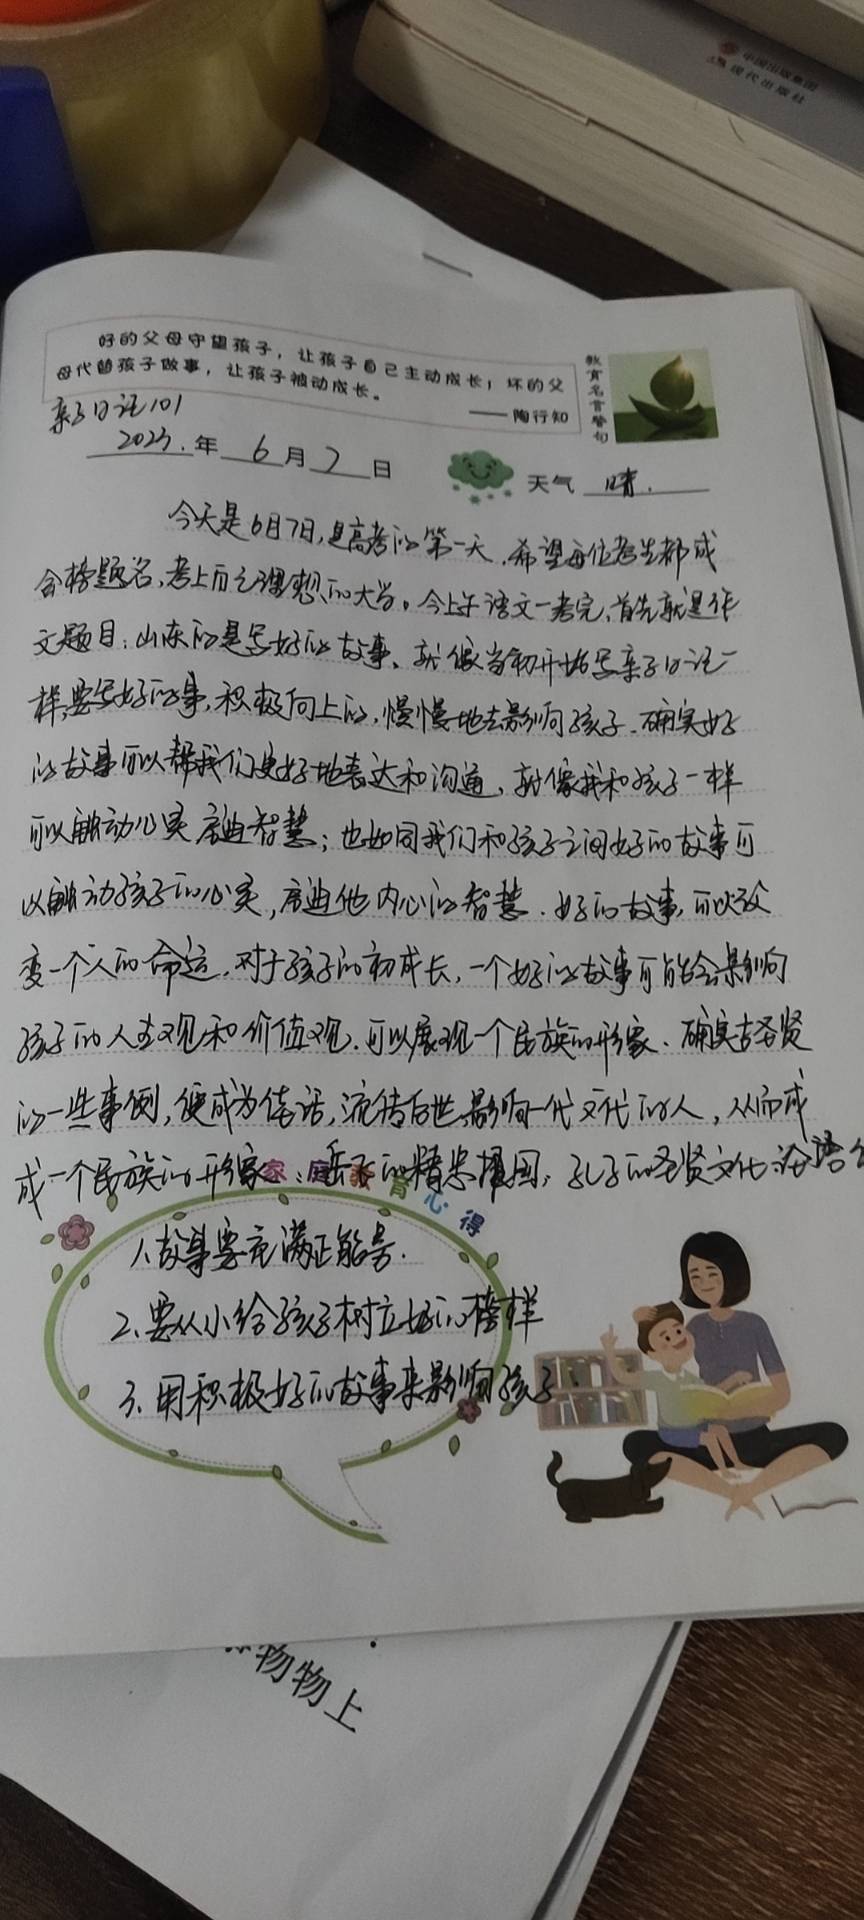 中国出版集团
现代出版社
好的父母守望孩子，让孩子自己主动成长；坏的父
母代替孩子做事，让孩子被动成长。
——陶行知
教育名言警句
亲子日记101
2023.年6月7日
天气 晴.
今天是6月7日,是高考的第一天,希望每位考生都成
金榜题名,考上自己理想的大学。今上午语文一考完,首先就是作
文题目:山东的是写好的故事、就像当初开始写亲子日记一
样,要写好的事,积极向上的,慢慢地去影响孩子.确实好
的故事可以帮我们更好地表达和沟通、就像我和孩子一样
可以触动心灵启迪智慧;也如同我们和孩子之间好的故事可
以触动孩子的心灵,启迪他内心的智慧.好的故事,可以改
变一个人的命运.对于孩子的初成长,一个好的故事可能会影响
孩子的人生观和价值观.可以展现一个民族的形象.确实古圣贤
的一些事例,便成为佳话,流传后世,影响一代又代的人,从而成
成一个民族的形象:岳飞的精忠报国;孔子的圣贤文化:论语
家庭教育心得
1.故事要充满正能量.
2、要从小给孩子树立好的榜样
3、用积极好的故事来影响孩子
物物上